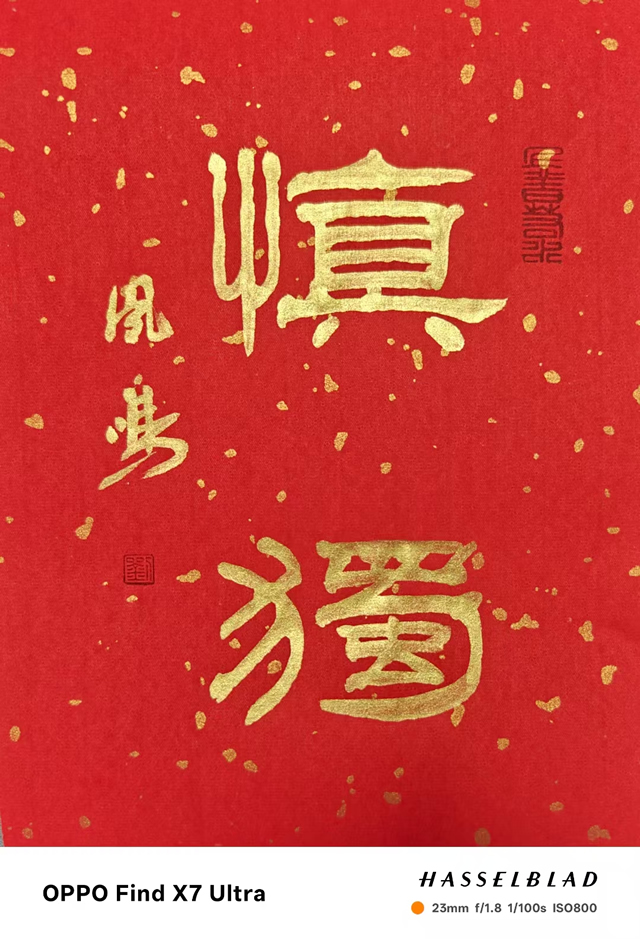 慎獨
OPPO Find X7 Ultra
HASSELBLAD
23mm f/1.8 1/100s ISO800